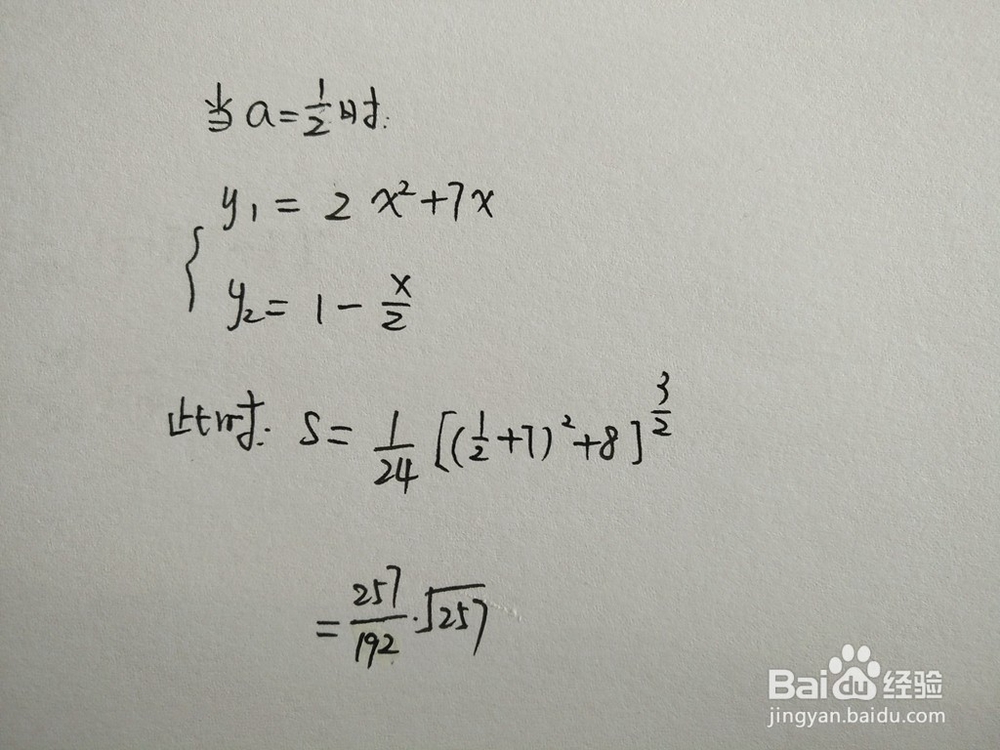 当 a = 1/2 时:
y₁ = 2 x² + 7x
{
y₂ = 1 - x/2
此时: S = 1/24 [(1/2 + 7)² + 8]^(3/2)
= 257/192 · √257
Baidu 经验
jingyan.baidu.com